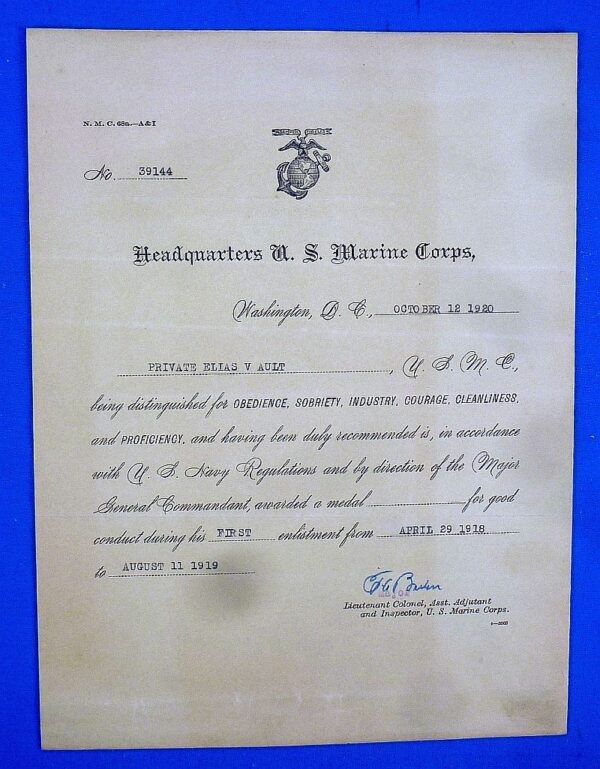 N. M. C. 68a.—A&I
SEMPER FIDELIS
No. 39144
Headquarters U. S. Marine Corps,
Washington, D. C., OCTOBER 12 1920
PRIVATE ELIAS V AULT, U. S. M. C.,
being distinguished for OBEDIENCE, SOBRIETY, INDUSTRY, COURAGE, CLEANLINESS,
and PROFICIENCY, and having been duly recommended is, in accordance
with U. S. Navy Regulations and by direction of the Major
General Commandant, awarded a medal for good
conduct during his FIRST enlistment from APRIL 29 1918
to AUGUST 11 1919
Lieutenant Colonel, Asst. Adjutant
and Inspector, U. S. Marine Corps.